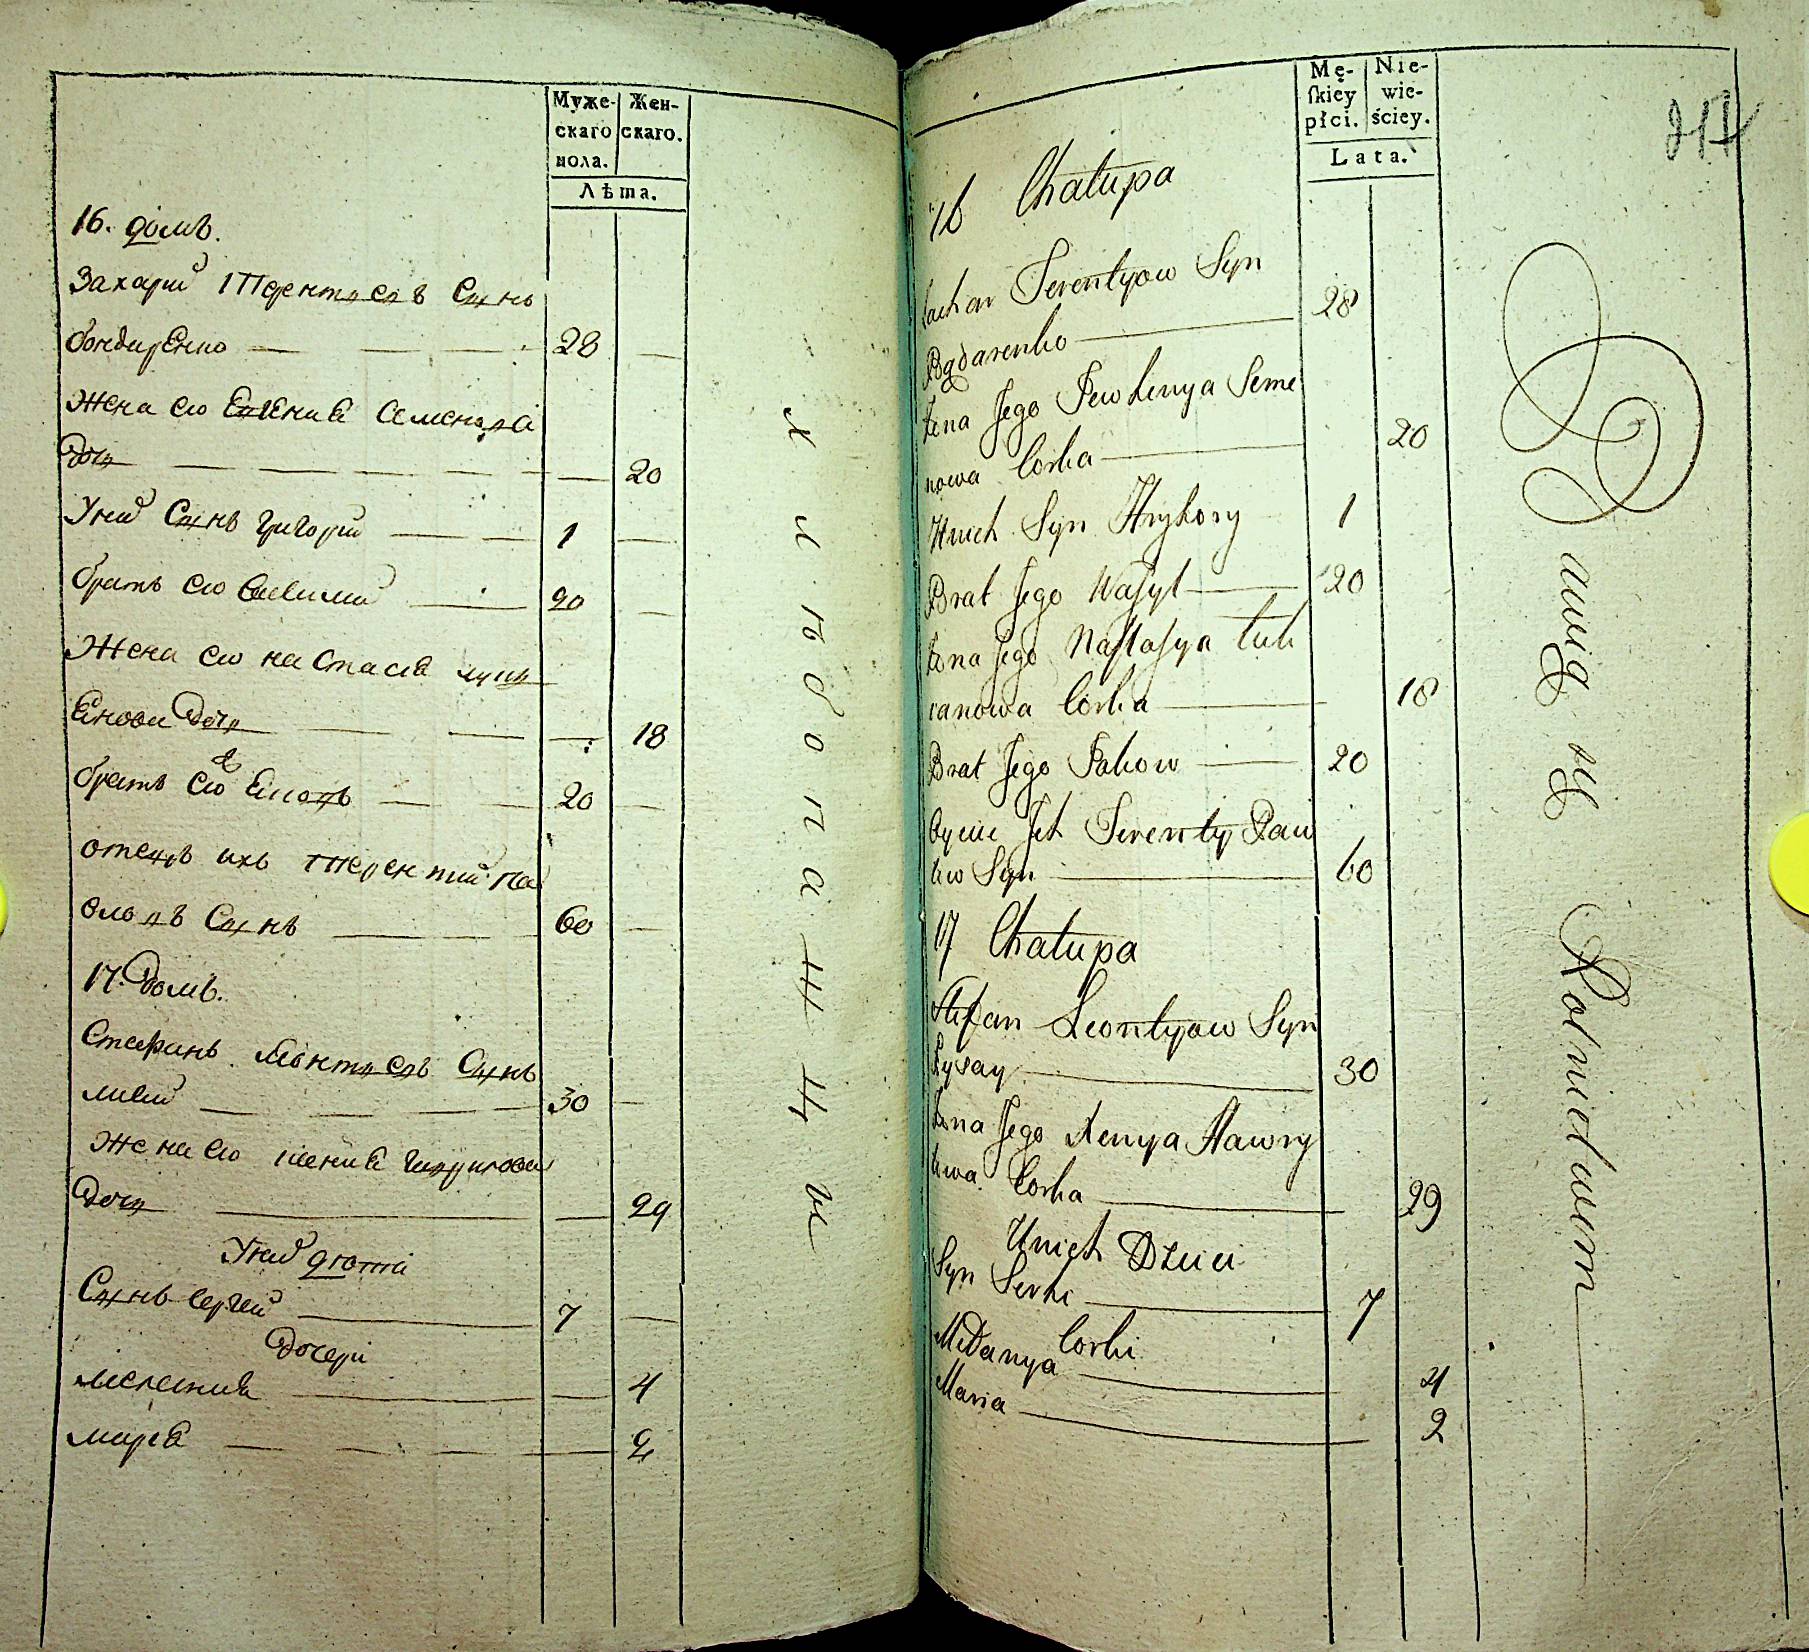 Муже-
скаго
пола.
Жен-
скаго.
Лѣта.
16. домъ.
Захарий Терентьевъ Сынъ
бондаренко 28
жена его Евгения Семенова
дочь 20
У ний Сынъ григорий 1
братъ его василий 20
жена его настасия
дочь 18
братъ его 20
отецъ ихъ терентий па
вловъ Сынъ 60
17. домъ.
Стефанъ леонтьевъ Сынъ
лисий 30
жена его ксения гаврилова
дочь 29
У ний дѣти
Сынъ сергей 7
дочери
мелания 4
мария 2
Mę-
ſkiey
płci.
Nie-
wie-
ściey.
Lata.
16 Chałupa
Zachar Terentyow Syn
Bądarenko 28
Żena Jego Jewhenya Seme
nowa Corka 20
Hnich Syn Hryhory 1
Brat Jego Waſyl 20
Żena Jego Naſtaſya Luk
ianowa Corka 18
Brat Jego Jakow 20
Oyciec Jch Terenty Paw
low Syn 60
17 Chałupa
Stefan Leontyow Syn
Łysay 30
Żena Jego Xenya Hawry
lowa Corka 29
Unich Dzieci
Syn Serhi 7
Corki
Melanya 4
Maria 2